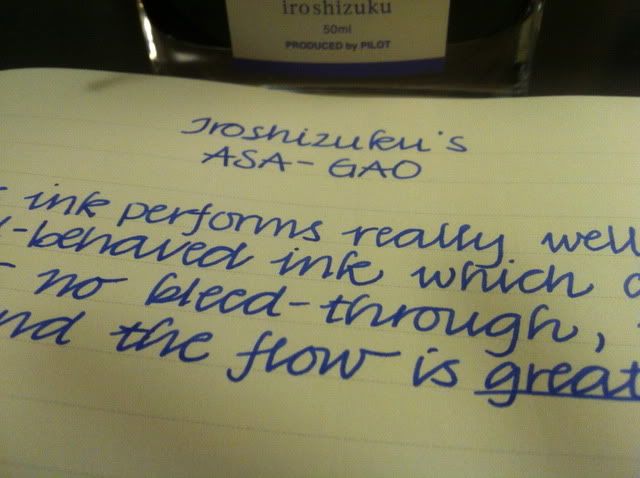 iroshizuku
50ml
PRODUCED by PILOT
Iroshizuku's
ASA-GAO
ink performs really well
-behaved ink which
- no bleed-through,
the flow is great